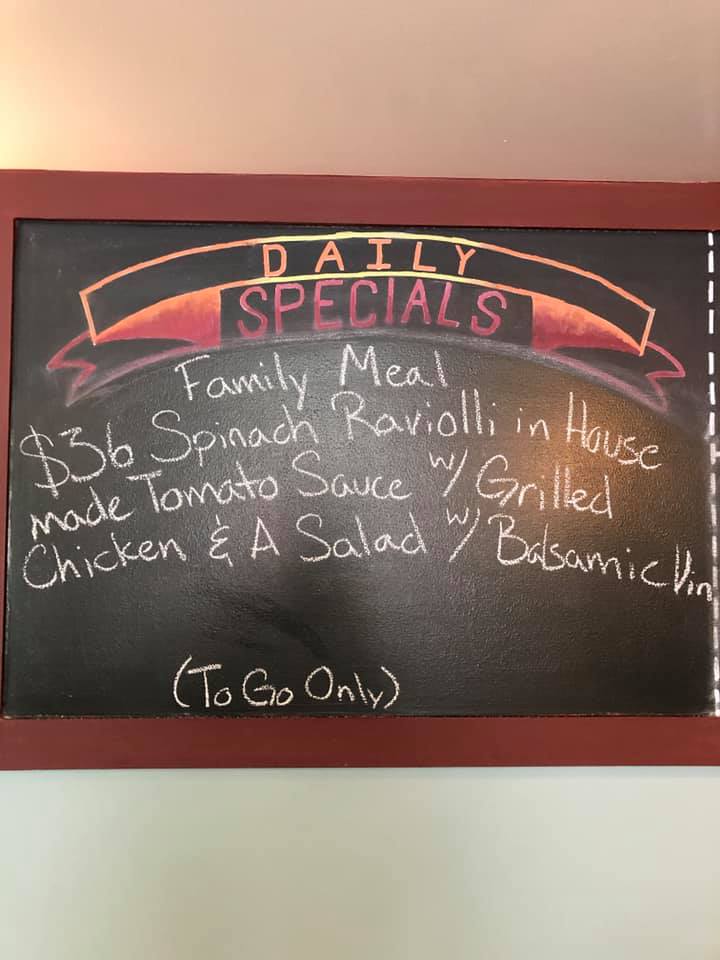 DAILY
SPECIALS
Family Meal
$36 Spinach Raviolli in House
made Tomato Sauce w/ Grilled
Chicken & A Salad w/ Balsamic Vin
(To Go Only)